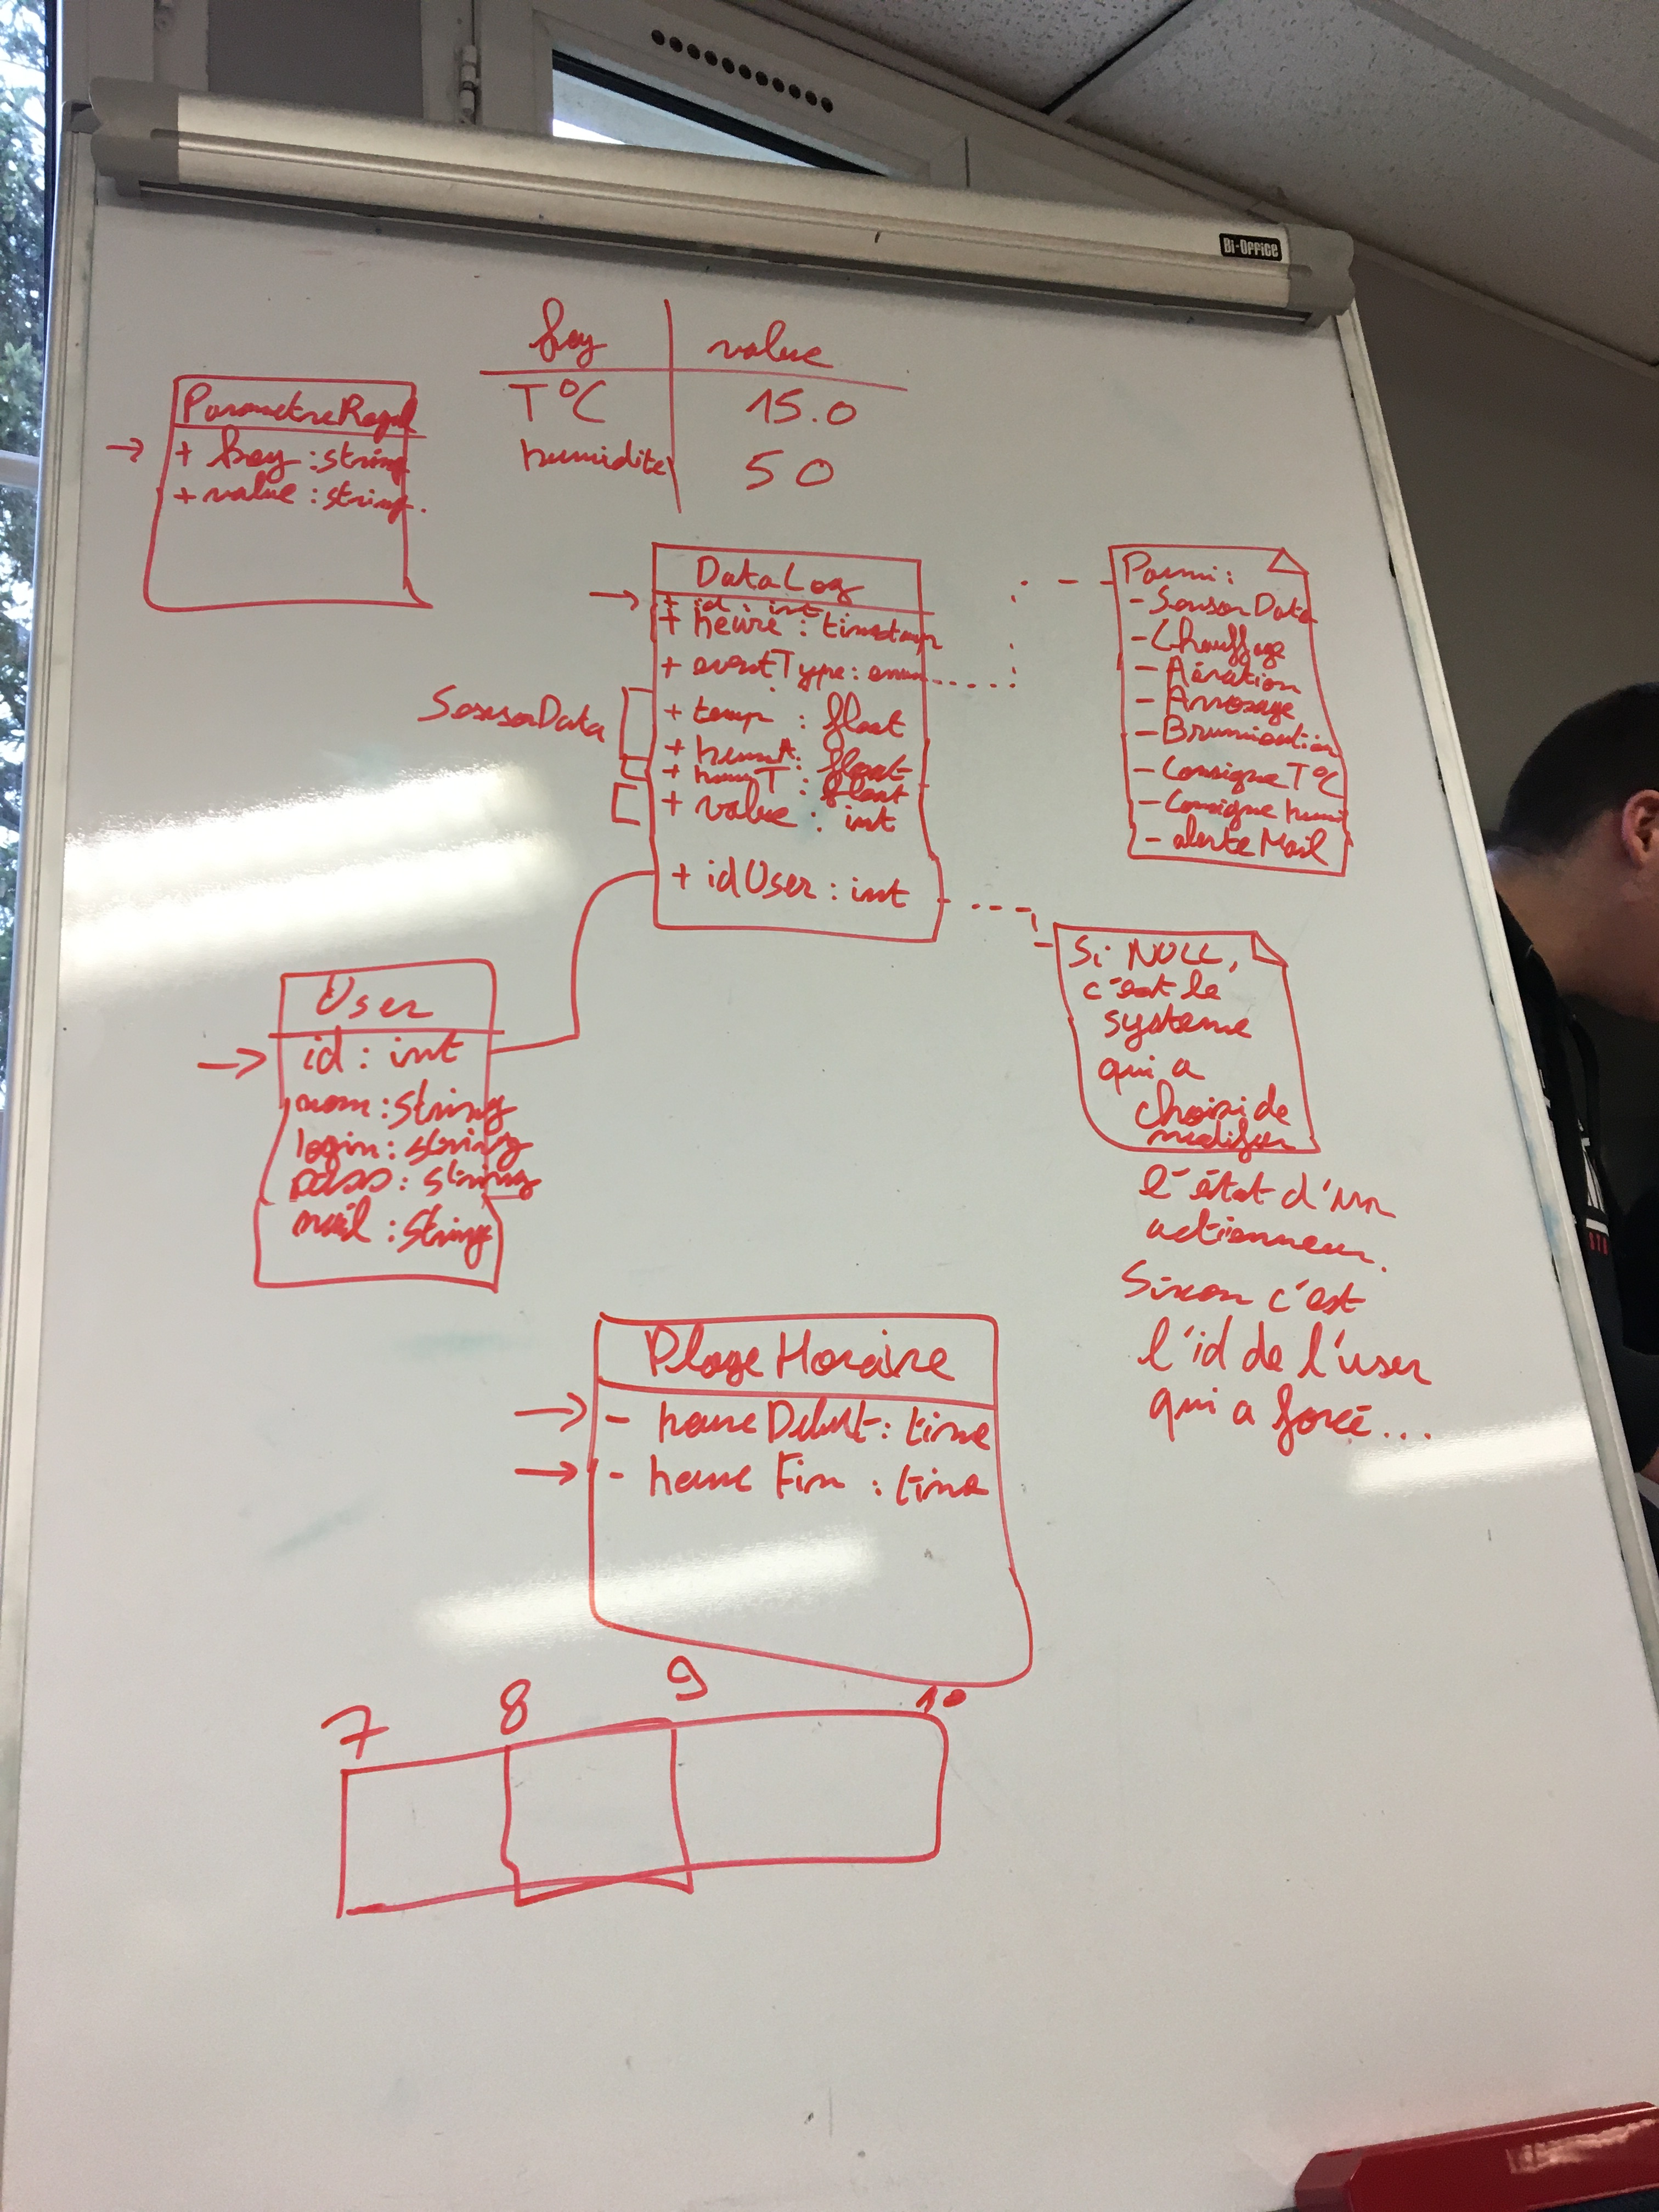 Bi-Office
key value
T°C 15.0
humidité 50
ParametreRegul
+ key : string
+ value : string.
DataLog
+ id : int
+ heure : timestamp
+ eventType : enum
SensorData
+ temp : float
+ humA : float
+ humT : float
+ value : int
+ idUser : int
Parmi :
- SensorData
- Chauffage
- Aération
- Arrosage
- Brumisation
- Consigne T°C
- Consigne humi
- alerteMail
Si NULL,
c'est le
systeme
qui a
choisi de
modifier
l'état d'un
actionneur.
Sinon c'est
l'id de l'user
qui a forcé...
User
id : int
nom : string
login : string
pass : string
mail : string
PlageHoraire
- heureDebut : time
- heureFin : time
7 8 9 10